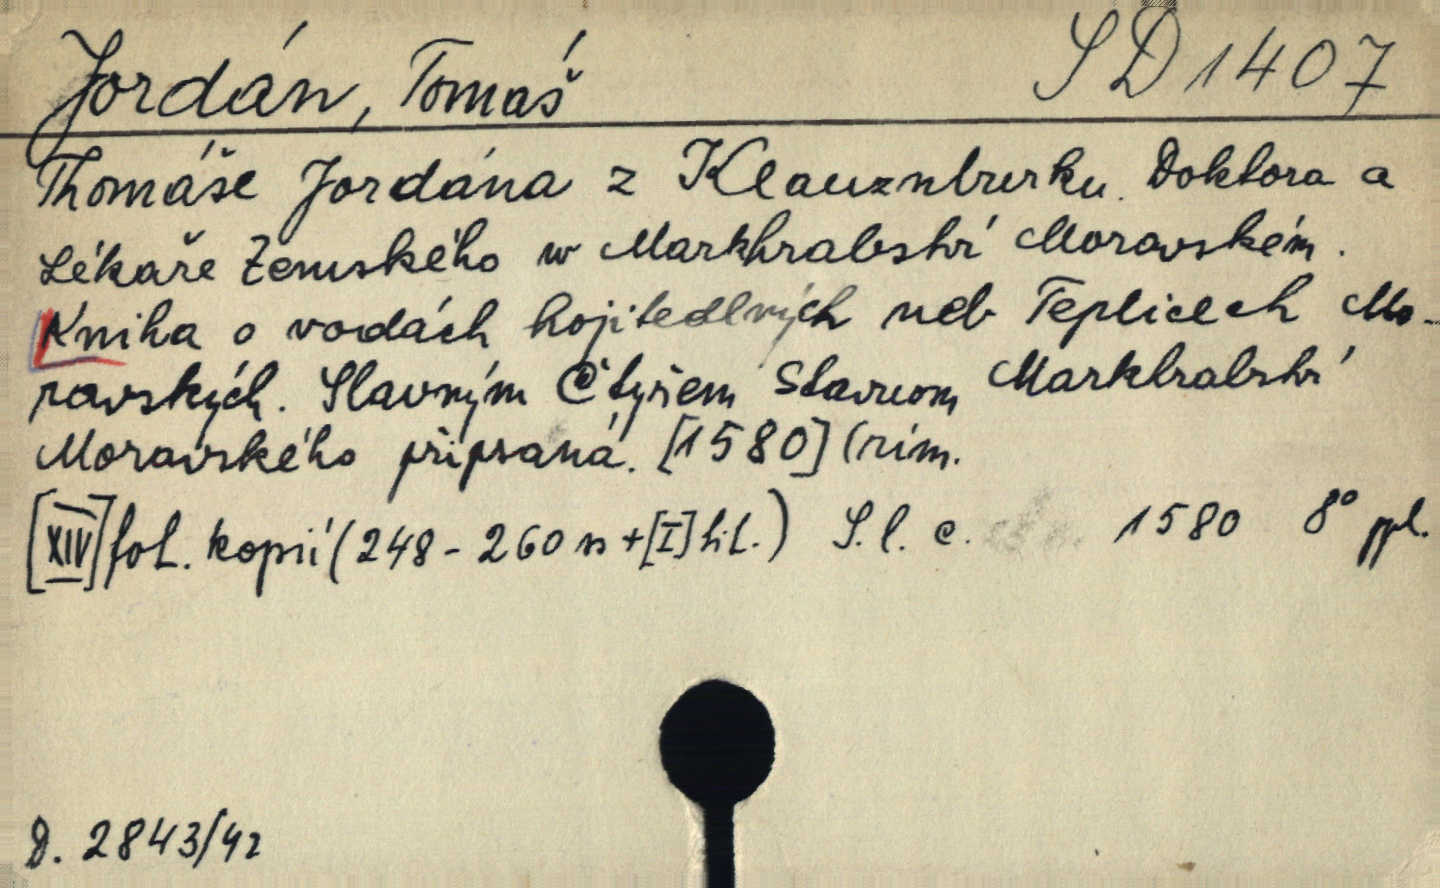 Jordán, Tomáš SD 1407
Thomáše Jordána z Klauznburku. Doktora a
Lékaře Zemského w Markhrabství Moravském.
Kniha o vodách hojitedlných neb Teplicech Mo-
ravských. Slavným Čtyřem Stavuom Markhrabství
Moravského připsaná. [1580] (rim.
[XIV] fol. kopií (248-260 n + [I] tit.) S. l. e. 1580 8° ppl.
D. 2843/42